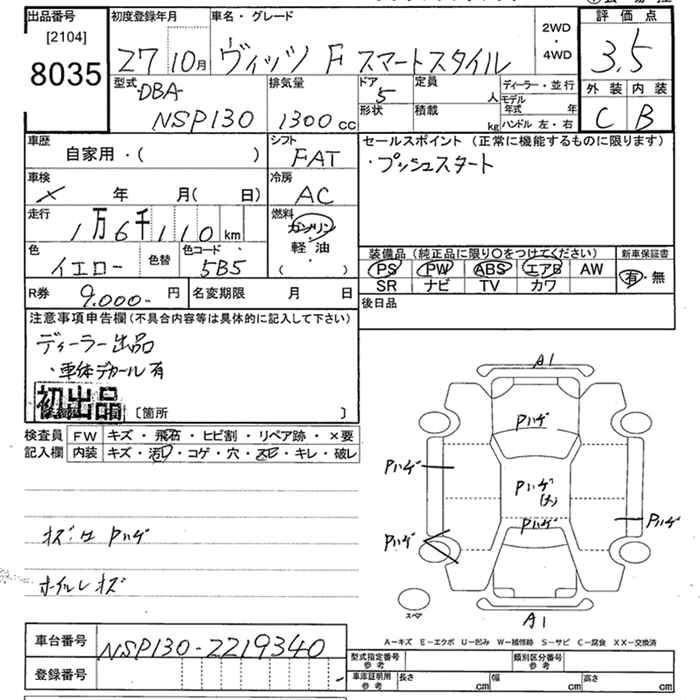 出品番号 初度登録年月 車名・グレード 2WD 評価点
[2104] ・
8035 27 10月 ヴィッツ F スマートスタイル 4WD 3.5
型式 DBA- 排気量 ドア 5 定員 人 ディーラー・並行 外装 内装
モデル年式 年
NSP130 1300cc 形状 積載 kg ハンドル 左・右 C B
車歴 シフト セールスポイント (正常に機能するものに限ります)
自家用・( ) FAT ・プッシュスタート
車検 冷房
× 年 月(日) AC
走行 燃料
1万6千110km ガソリン
色 色替 色コード 軽・油 装備品 (純正品に限り○をつけてください) 新車保証書
イエロー 5B5 ( ) PS PW ABS エアB AW 有・無
R券 9.000- 円 名変期限 月 日 SR ナビ TV カワ
注意事項申告欄 (不具合内容等は具体的に記入して下さい) 後日品
ディーラー出品
・車体デカール有
初出品
[箇所 ]
検査員 FW キズ・飛石・ヒビ割・リペア跡・×要
記入欄 内装 キズ・汚レ・コゲ・穴・スレ・キレ・破レ
A1
Pハゲ
Pハゲ
Pハゲ
Pハゲ
Pハゲ
Pハゲ
キズ Pハゲ
ホイルキズ
スペア
A1
A-キズ E-エクボ U-凹み W-補修跡 S-サビ C-腐食 XX-交換済
車台番号 NSP130-2219340
型式指定番号 参考 類別区分番号 参考
登録番号 車庫証明用 参考 長さ cm 幅 cm 高さ cm